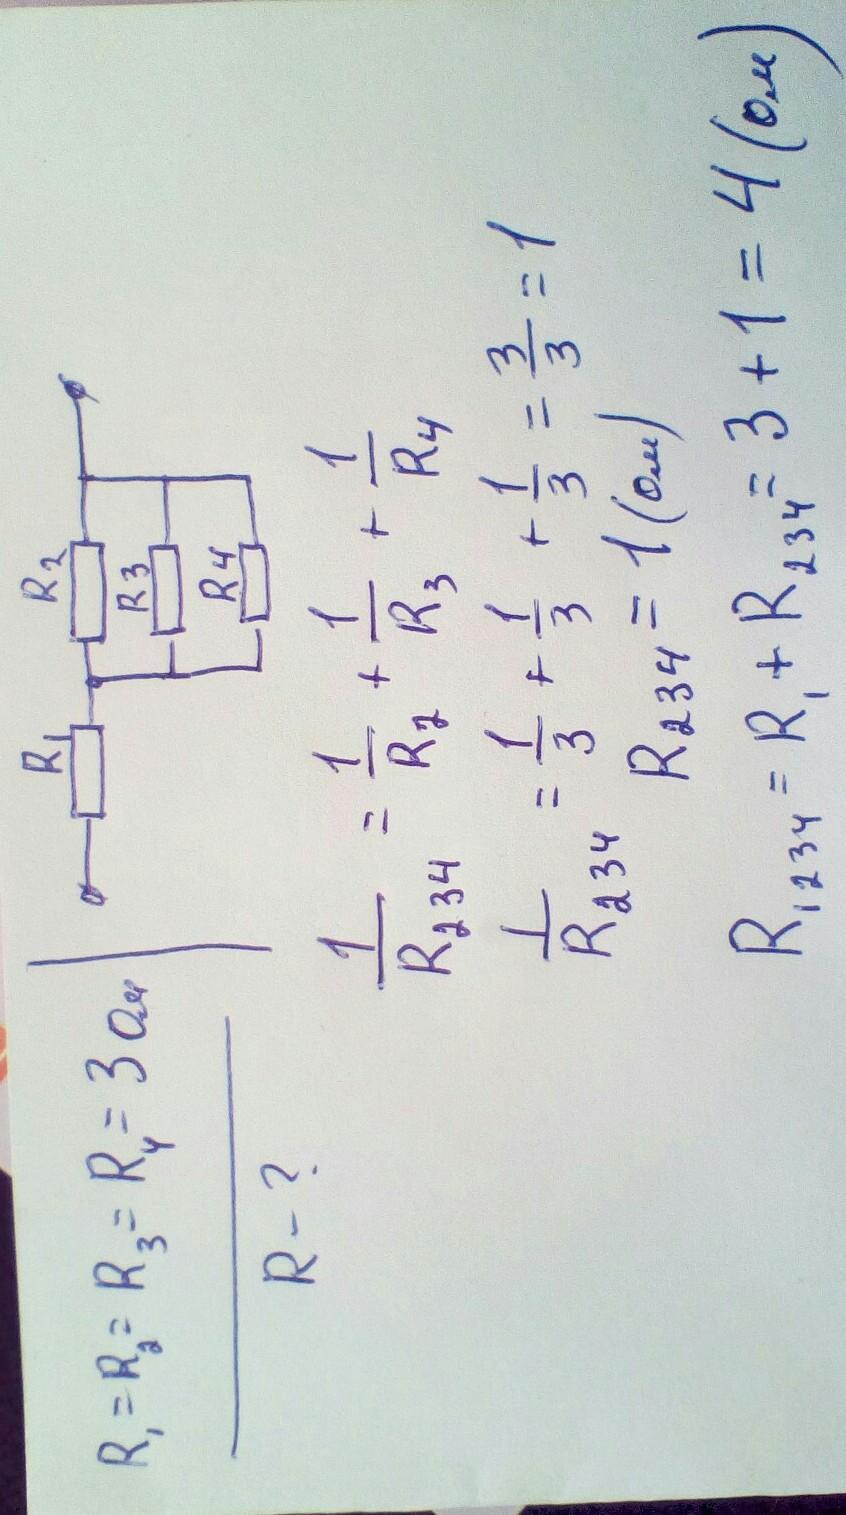 R₁ = R₂ = R₃ = R₄ = 3 Ом
R - ?
R₁
R₂
R3
R4
1/R₂₃₄ = 1/R₂ + 1/R₃ + 1/R₄
1/R₂₃₄ = 1/3 + 1/3 + 1/3 = 3/3 = 1
R₂₃₄ = 1 (Ом)
R₁₂₃₄ = R₁ + R₂₃₄ = 3 + 1 = 4 (Ом)